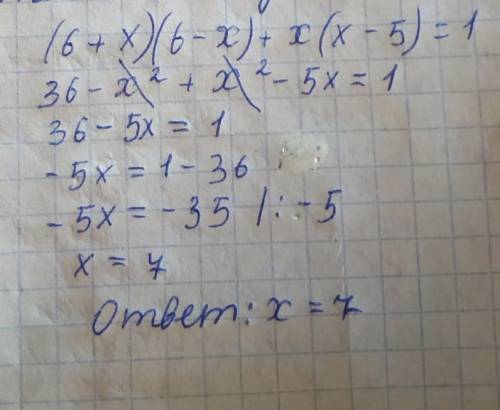 (6 + x)(6 - x) + x(x - 5) = 1
36 - x² + x² - 5x = 1
36 - 5x = 1
-5x = 1 - 36
-5x = -35 |: -5
x = 7
Ответ: x = 7